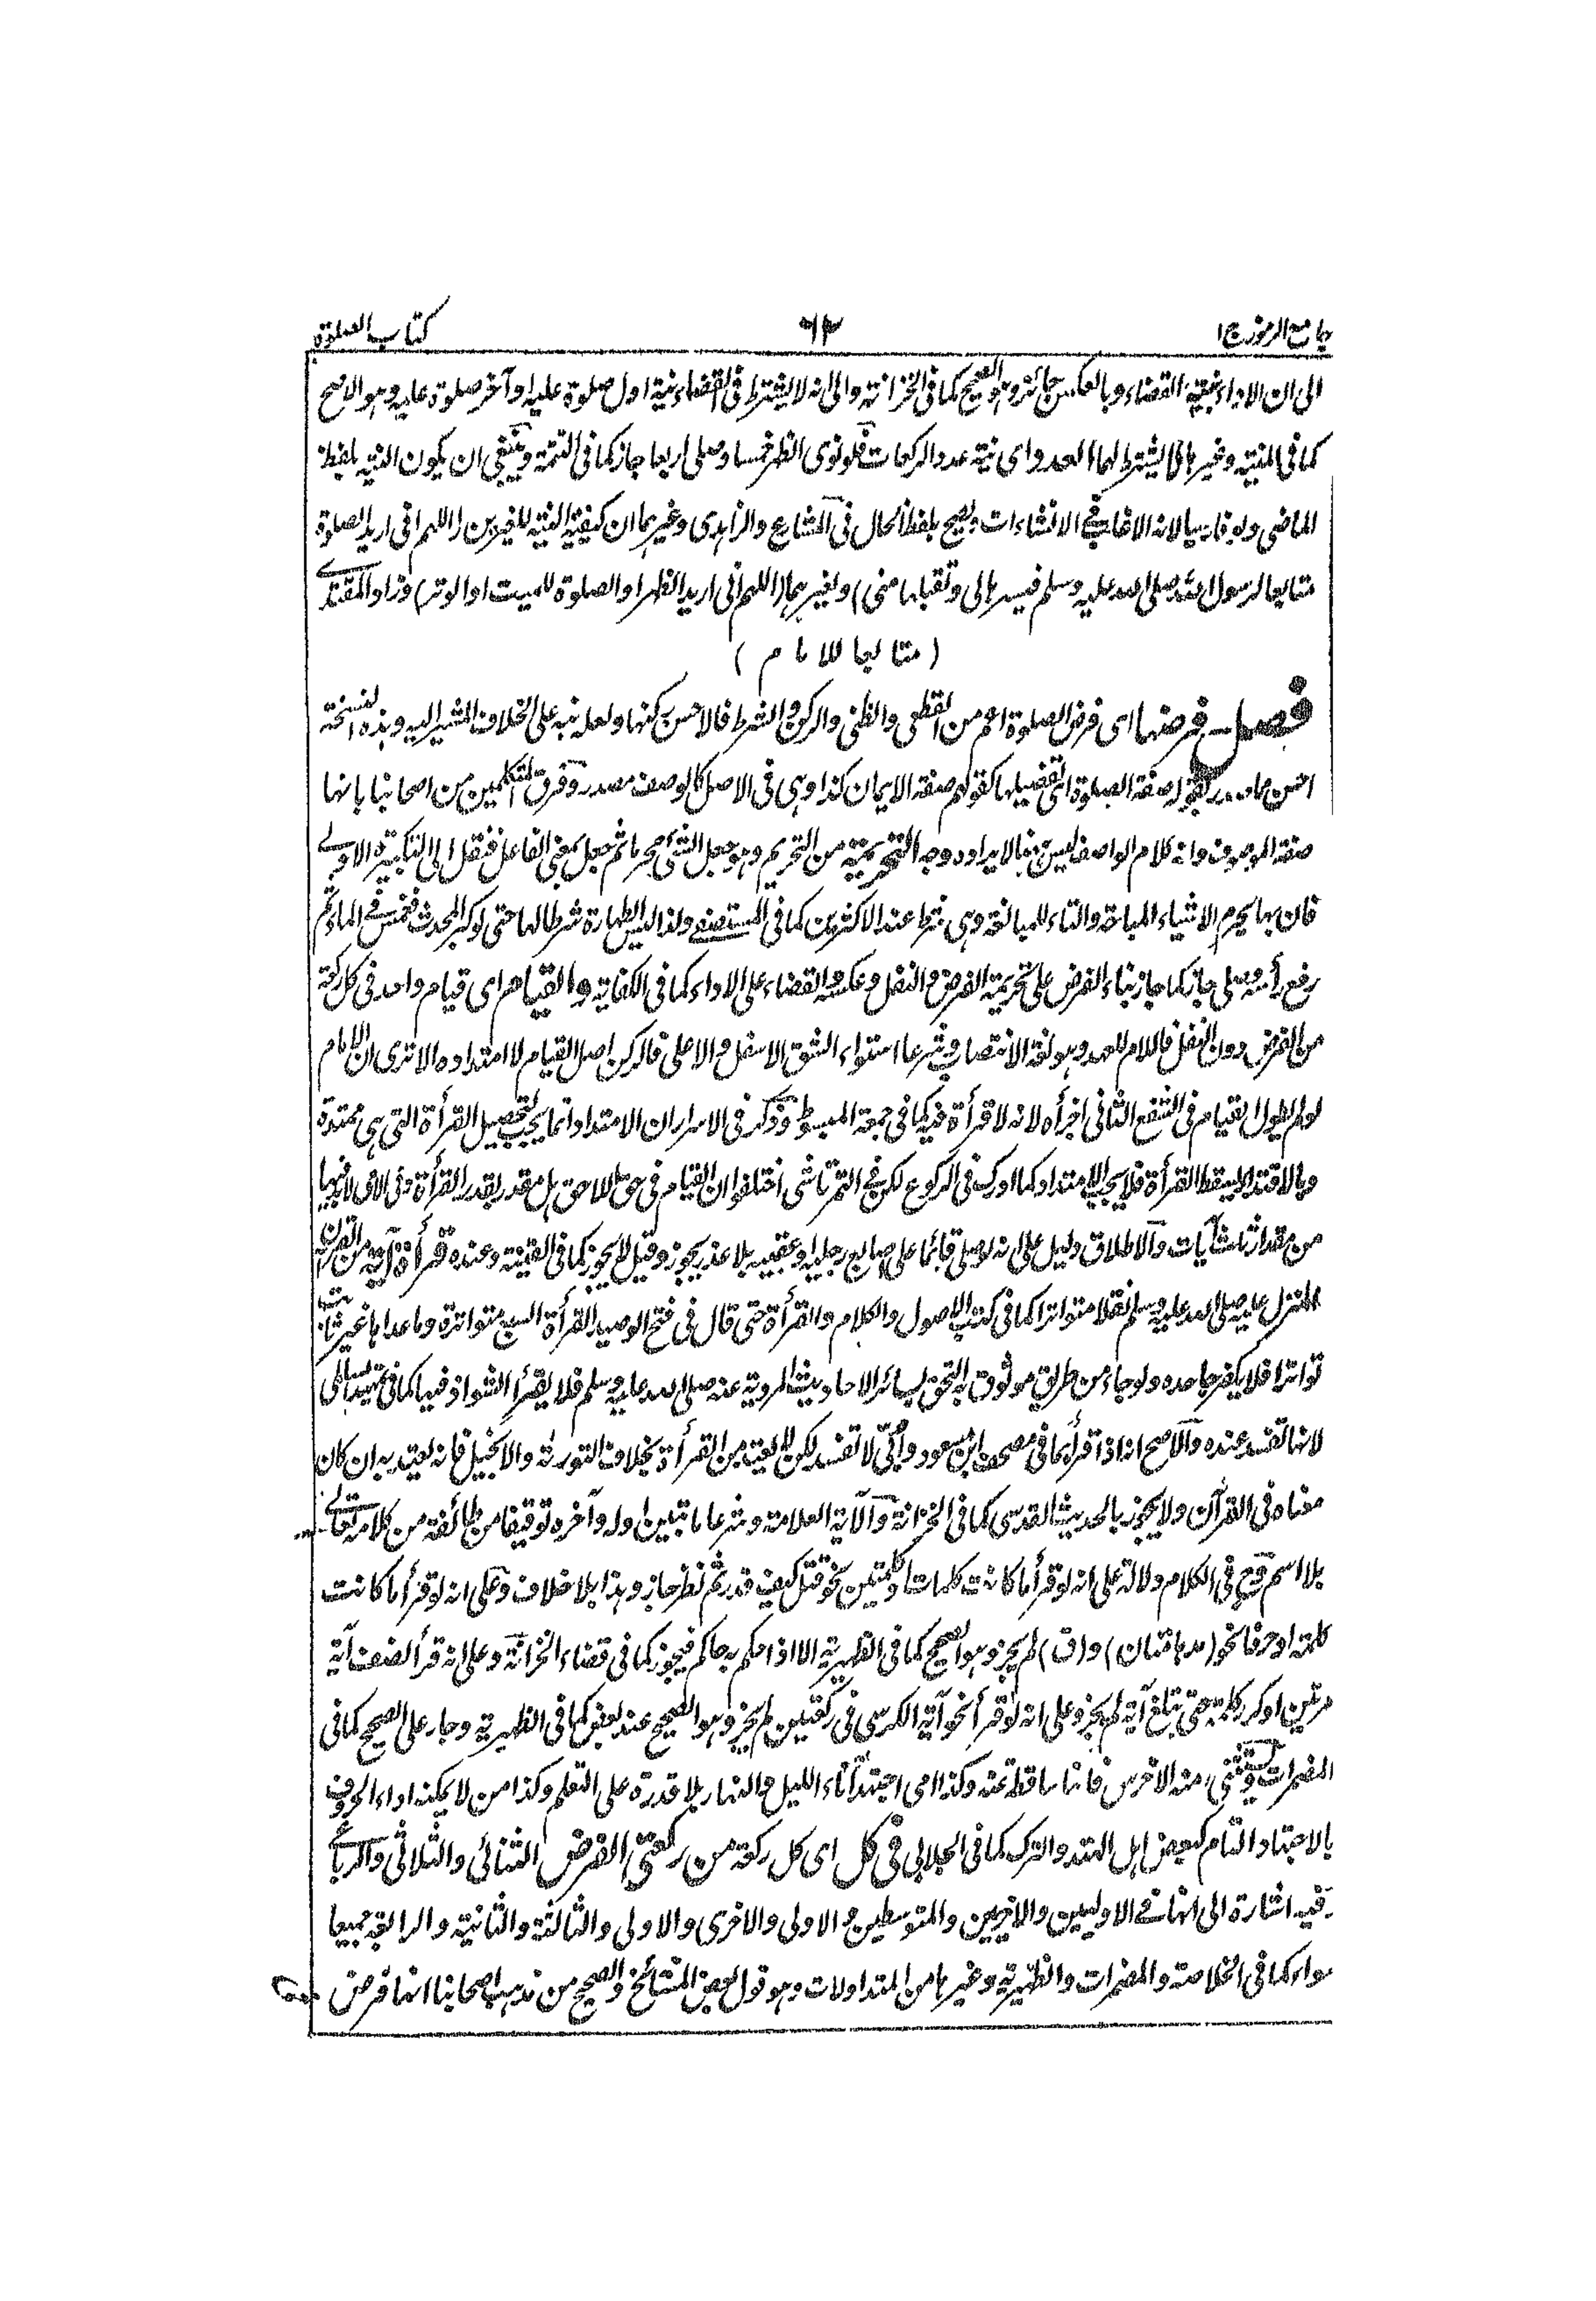 جامع الرموز ج١ ٦٢ كتاب الصلوة
الى ان الاداء بنية القضاء وبالعكس جائز وهو الصحيح كما فى الخزانة والى انه لا يشترط فى القضاء نية اول صلوة عليه او آخر صلوة عليه وهو الاصح
كما فى المنية وغيرها لا يشترط لهما العدد اى نية عدد الركعات فلو نوى الظهر خمسا وصلى اربعا جاز كما فى التتمة وينبغى ان يكون النية بلفظ
الماضى ولو فارسيا لانه الاغلب فى الانشاءات ويصح بلفظ الحال فى المشارع والزاهدى وغيرهما ان كيفية النية للفرض اللهم انى اريد الصلوة
متابعا لرسول الله صلى الله عليه وسلم فيسرها لى وتقبلها منى) ولغيرهما (اللهم انى اريد الظهر او الصلوة للميت او الوتر) وزاد المقتدى
(متابعا للامام)
فصل فرضها اى فرض الصلوة اعم من القطعى والظنى والركن والشرط فالاحسن ركنها ولعله نبه على الخلاف المشير اليه وهذه النسخة
احسن مما صدر بقوله صفة الصلوة التى تفضيلها كقولهم صفة الايمان كذا وهى فى الاصل كالوصف مصدر وفرق المتكلمين من اصحابنا بانها
صفة الموصوف وانه كلام الواصف ليس مما لا يراد ووجه التحريمة من التحريم وهو جعل الشئ محرما ثم جعل بمعنى الفاعل فنقل الى التكبيرة الاولى
فان بها يحرم الاشياء المباحة والتاء للمبالغة وهى شرط عند الاكثرين كما فى المستصفى ولذا ليس الطهارة شرطا لها حتى لو كبر المحدث فغمس فى الماء ثم
رفع رأسه وصلى جاز كما جاز بناء الفرض على تحريمة الفرض والنفل وعكسه والقضاء على الاداء كما فى الكفاية والقيام اى قيام واحد فى كل ركعة
من الفرض دون النفل فاللام للعهد وهو لغة الانتصاب وشرعا استواء الشق الاسفل والاعلى فالركن اصل القيام لا امتداده الا ترى ان الامام
لو لم يطول القيام فى الشفع الثانى اجزأه لانه لا قرأة فيه كما فى جمعة المبسوط وذكر فى الاسرار ان الامتداد انما يجب لتحصيل القرأة التى هى ممتدة
وبالاقتداء يسقط القرأة فلا يجب الامتداد كما ادرك فى الركوع لكن فى التمرتاشى اختلفوا ان القيام فى حق اللاحق بل مقدر بقدر القرأة وفى الامى لا بد فيها
من مقدار ثلث آيات والاطلاق دليل على انه لو صلى قائما على اصابع رجليه او عقبيه بلا عذر يجوز وقيل لا يجوز كما فى القنية وعنده قرأة آية من القرآن
المنزل عليه صلى الله عليه وسلم نقلا متواترا كما فى كتب الاصول والكلام والقرأة حتى قال فى فتح الوصيد القرأة السبع متواترة وما عداها غير ثابتة
تواترا فلا يكفر جاحده ولو جاء من طريق موثوق به التحق بسائر الاحاديث المروية عنه صلى الله عليه وسلم فلا يقرأ الشواذ فيها كما فى تمهيد السالمى
لانها تفسد عنده والاصح انه اذا قرأ بما فى مصحف ابن مسعود وأبىّ لا تفسد لكن لا يعتد من القرأة بخلاف التورية والانجيل فانه يعتد به ان كان
معناه فى القرآن ولا يجوز بالحديث القدسى كما فى الخزانة والآية العلامة وشرعا ما تبين اوله وآخره توقيفا من طائفة من كلامه تعالى
بلا اسم وفى الكلام دلالة على انه لو قرأ ما كانت كلمات او كلمتين نحو قتل كيف قدر ثم نظر جاز وهذا بلا خلاف وعلى انه لو قرأ ما كانت
كلمة او حرفا نحو (مدهامتان) و(ق) لم يجز وهو الصحيح كما فى الظهيرية الا اذا حكم به حاكم فيجوز كما فى قضاء الخزانة وعلى انه قرأ نصف آية
مرتين او كرر كلمة حتى تبلغ آية لم يجز وعلى انه لو قرأ نحو آية الكرسى فى ركعتين لم يجز وهو الصحيح عند بعض كما فى الظهيرية وجاز على الصحيح كما فى
المضمرات ويستثنى منه الاخرس فانها ساقطة عنه وكذا امى اجتهد آناء الليل والنهار بلا قدرة على التعلم وكذا من لا يمكنه اداء الحروف
بالاجتهاد التام كبعض اهل الهند والترك كما فى الجلابى فى كل اى كل ركعة من ركعتى الفرض الثنائى والثلاثى والرباعى
وفيه اشارة الى انها فى الاوليين والاخريين والمتوسطين والاولى والاخرى والاولى والثالثة والثانية والرابعة جميعا
سواء كما فى الخلاصة والمضمرات والظهيرية وغيرها من المتداولات وهو قول بعض المشائخ والصحيح من مذهب اصحابنا انها فرض